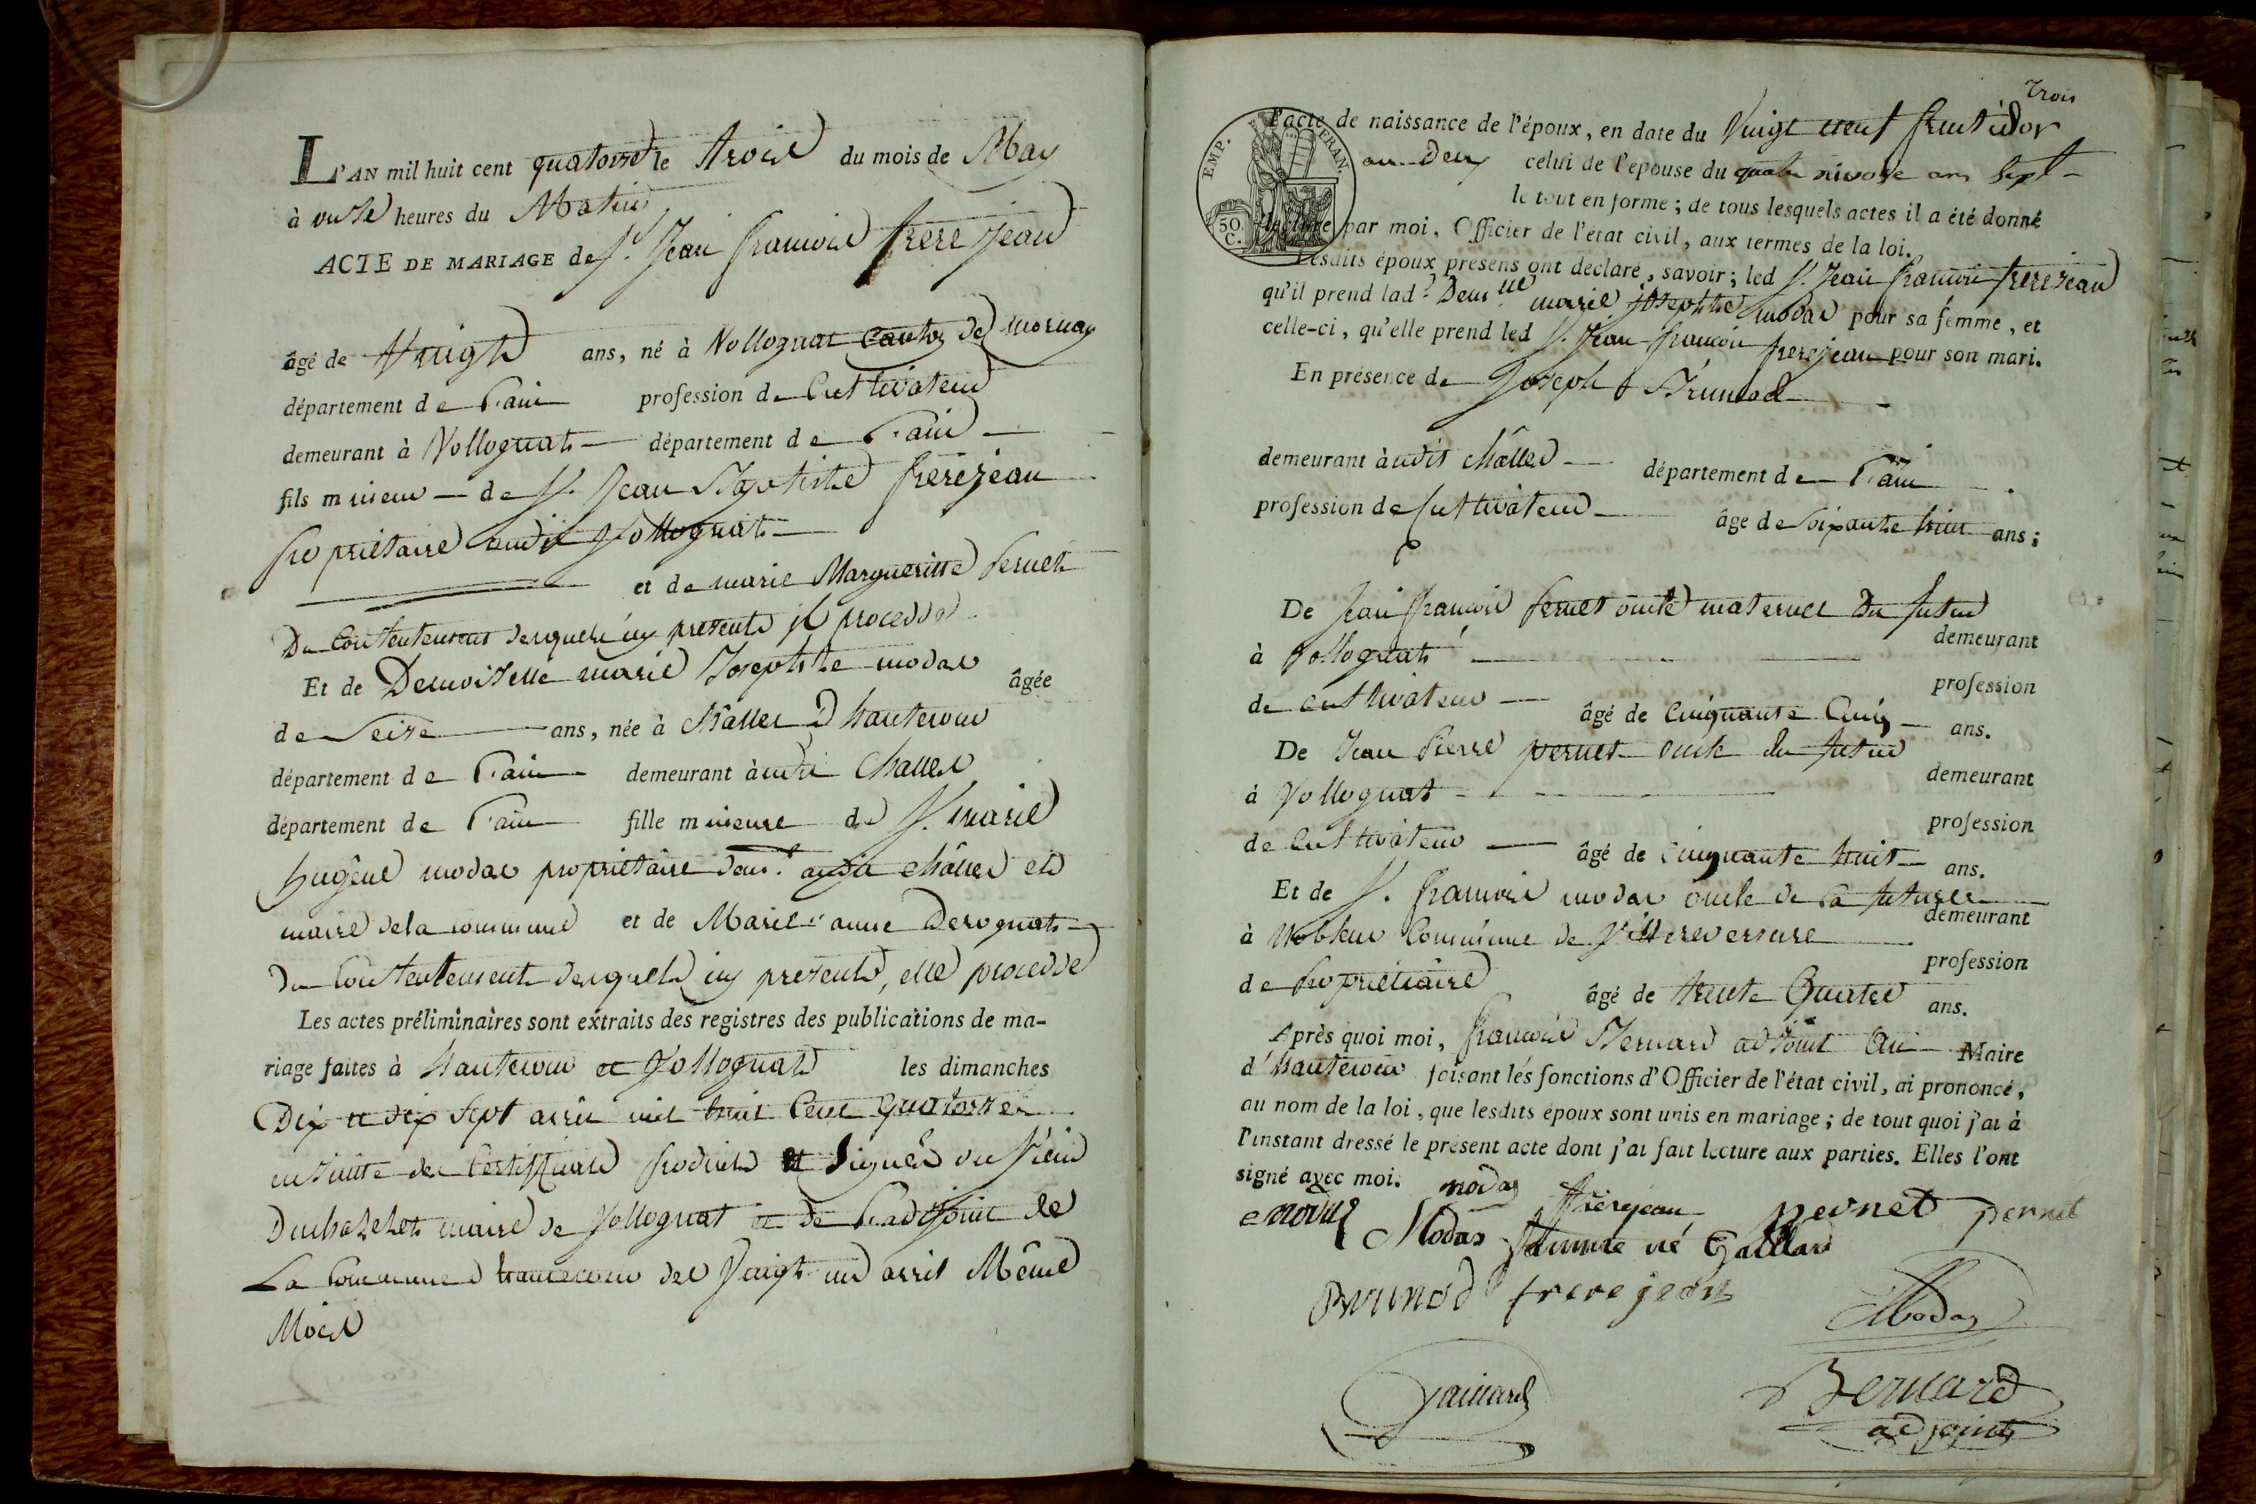 L'AN mil huit cent quatorze le trois du mois de May
à onze heures du Matin
ACTE DE MARIAGE de Sr. Jean francois frere Jean
âgé de Vingt ans, né à Vollognat Canton de mornay
département de l'ain profession de Cultivateur
demeurant à Vollognat département de l'ain
fils mineur de Sr. Jean Baptiste frerejean
propriétaire audit Vollognat
et de marie Margueritte pernet
Du Consentement desquels icy presents il procedde
Et de Demoiselle marie Josephte modas âgée
de Seize ans, née à Challes d hautecour
département de l'ain demeurant audit Challes
département de l'ain fille mineure de Sr. marie
hugêne modas propriétaire demt. audit Challes et
maire dela commune et de Marie anne Derognat
du Consentement desquels icy presents, elle procedde
Les actes préliminaires sont extraits des registres des publications de ma-
riage faites à hautecour et Vollognat les dimanches
Dix et dix sept avril mil huit Cent quatorze
ensuitte des Certifficats produits et signés du sieur
maire de Vollognat et de l'adjoint de
La Commune d hautecour des Vingt un avril Même
Mois
Trois
EMP. FRAN.
50 C.
l'acte de naissance de l'époux, en date du Vingt neuf fructidor
an Deux celui de l'epouse du quatre nivose an Sept
le tout en forme; de tous lesquels actes il a été donné
lecture par moi, Officier de l'état civil, aux termes de la loi.
Lesdits époux présens ont déclaré, savoir; led Sr. Jean francois frerejean
qu'il prend lad? Demlle marie Josephte modas pour sa femme, et
celle-ci, qu'elle prend led Sr. Jean francois frerejean pour son mari.
En présence de Joseph Brunod
demeurant audit Challes département de l'ain
profession de Cultivateur âge de soixante huit ans;
De Jean francois pernet oncle maternel du futur
demeurant
à Vollognat
profession
de cultivateur âgé de Cinquante Cinq ans.
De Jean Pierre pernet oncle du futur
demeurant
à Vollognat
profession
de Cultivateur âgé de cinquante huit ans.
Et de Sr. francois modas oncle de la future
demeurant
à Commune de Villereversure
profession
de propriétaire âgé de trente Quatre ans.
Après quoi moi, francois Bernard adjoint au Maire
d'hautecour faisant les fonctions d'Officier de l'état civil, ai prononcé,
au nom de la loi, que lesdits époux sont unis en mariage; de tout quoi j'ai à
l'instant dressé le présent acte dont j'ai fait lecture aux parties. Elles l'ont
signé avec moi. modas frèrejean pernet pernet
Modas né Gaillard
Brunod frere jean
Modas
Gaillard
Bernard
adjoint